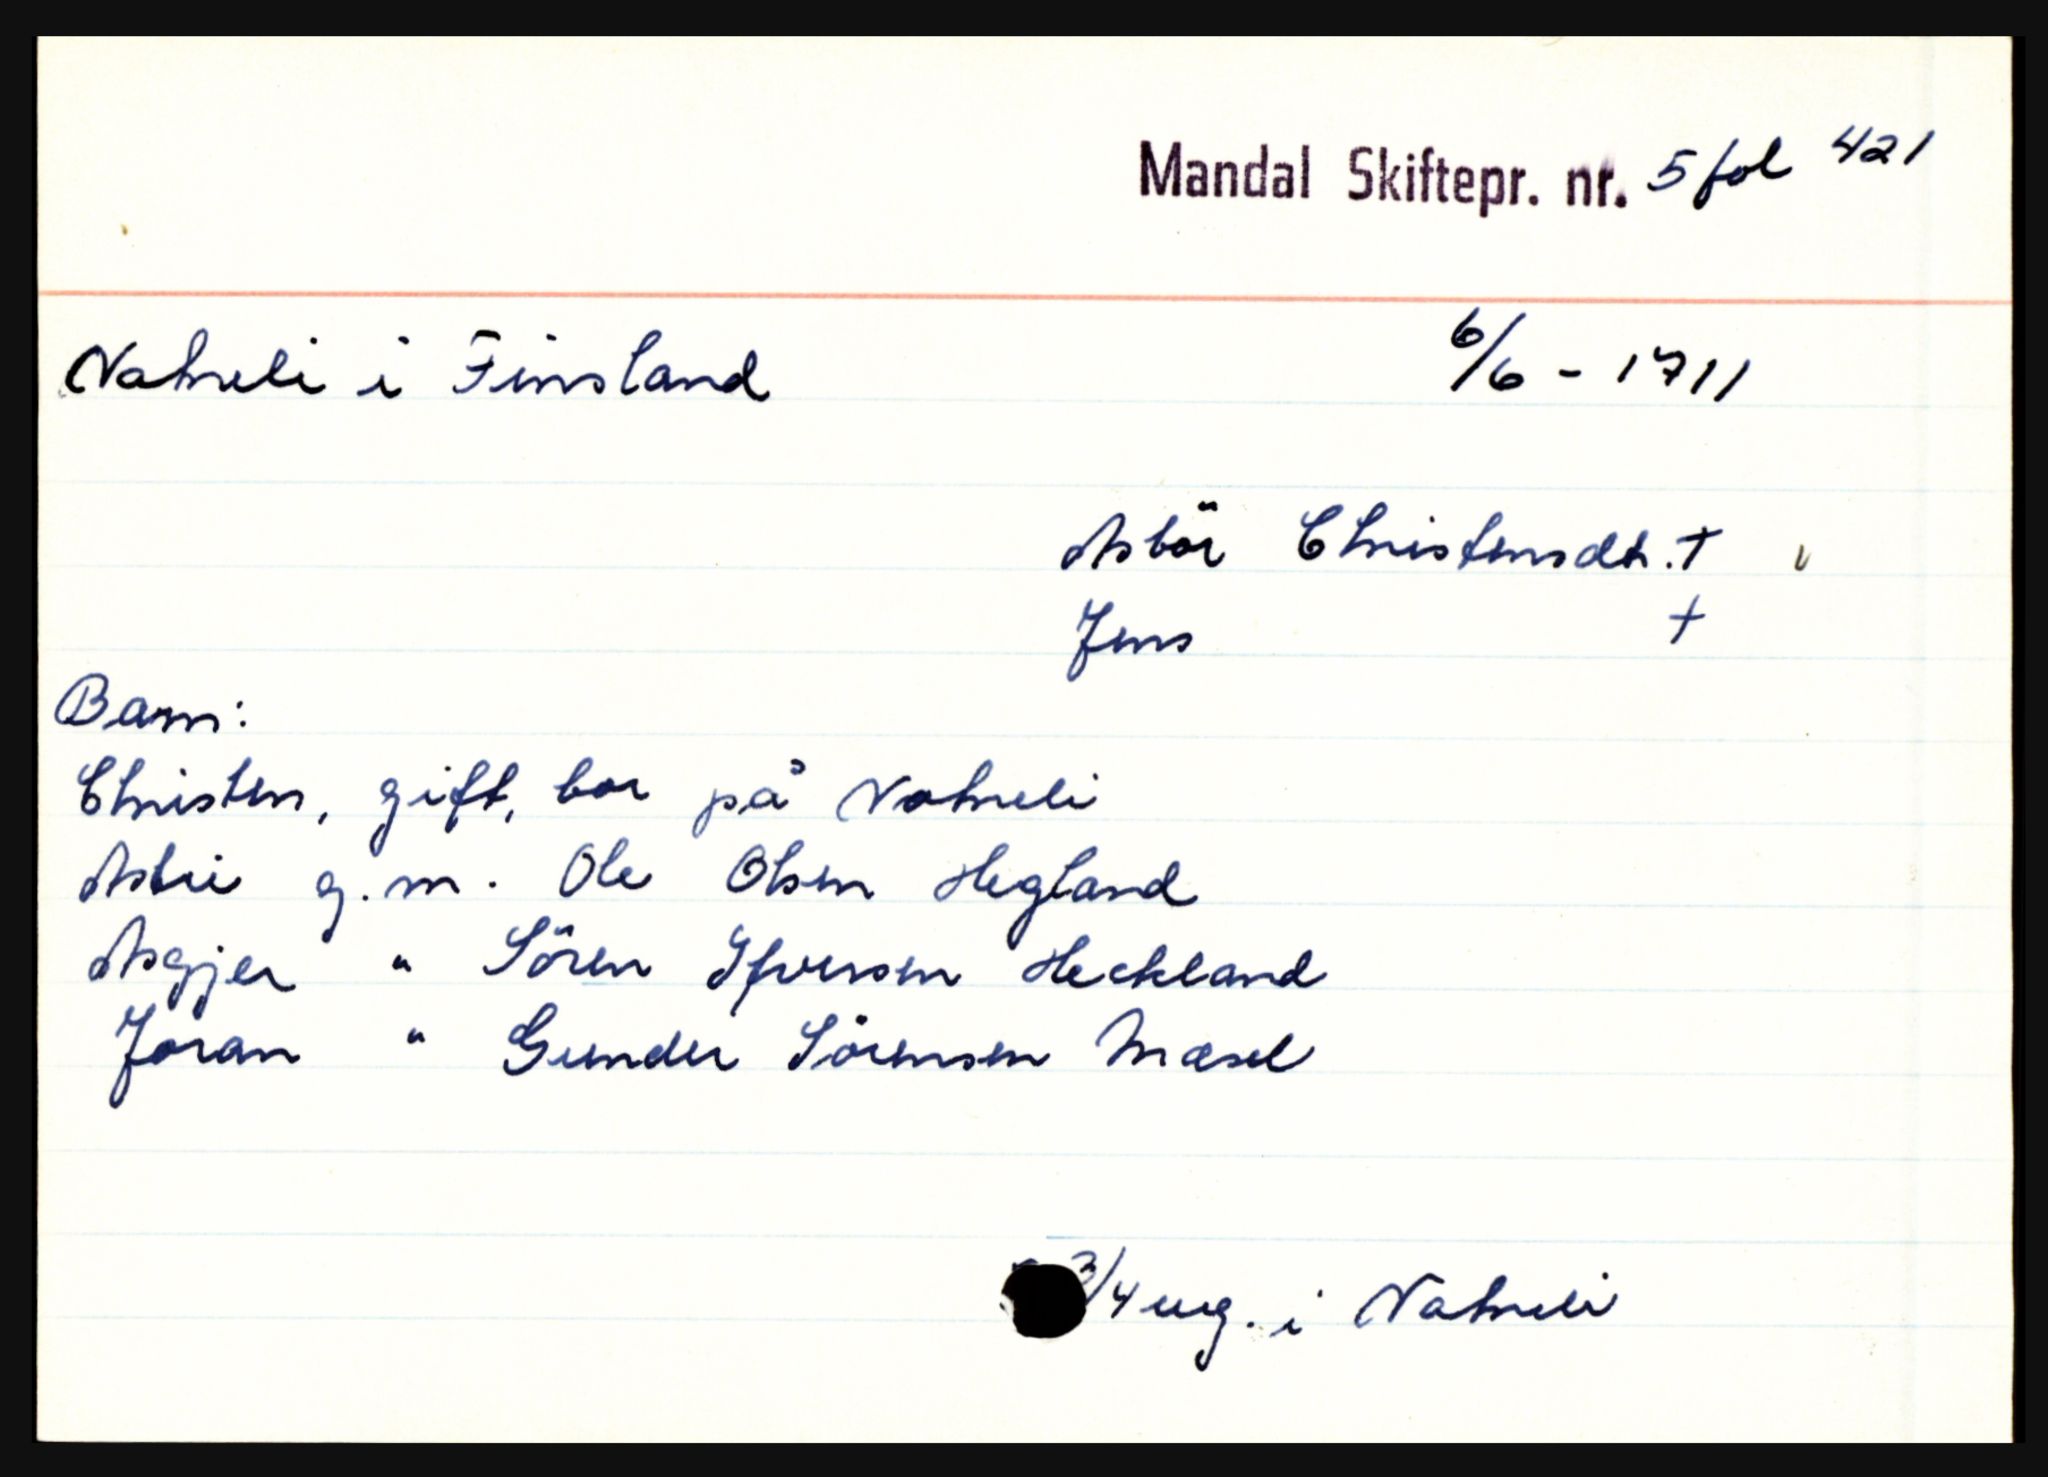 Mandal Skiftepr. nr. 5 fol 421
Natveli i Finsland 6/6 - 1711
Asbör Christensdt. +
Jens +
Barn:
Christen, gift, bor på Natveli
Asbri g.m. Ole Olsen Hegland
Asgjer " Sören Ifversen Heckland
Joran " Gunder Sörensen Mæsel
3/4 eng. i Natveli